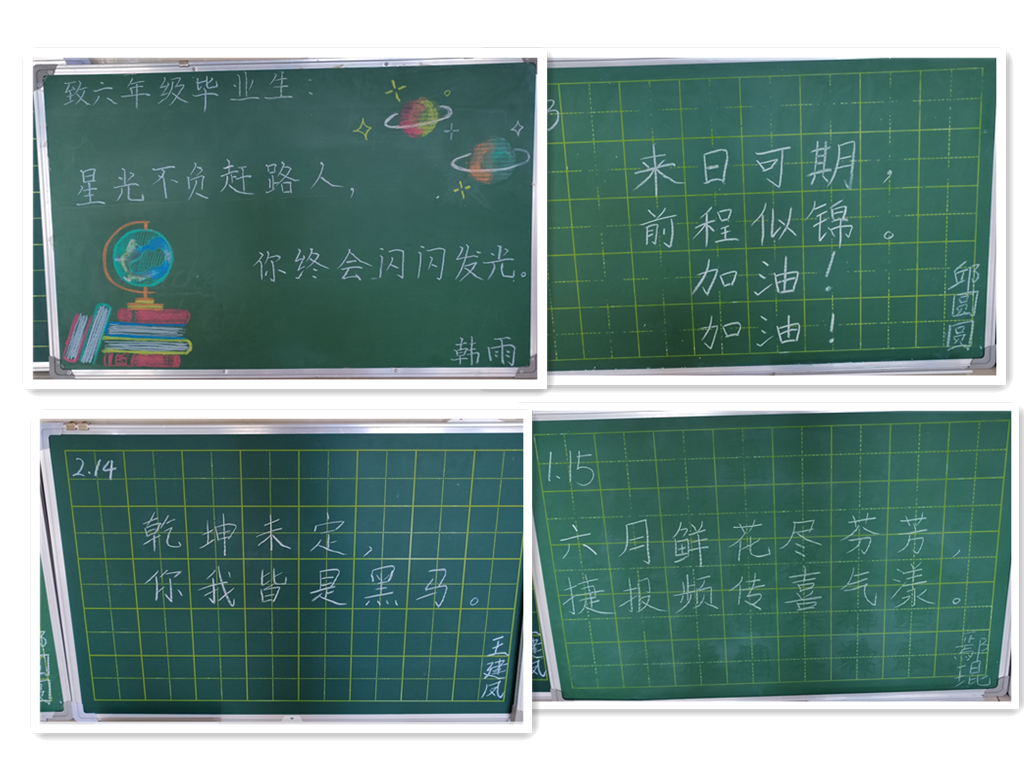 致六年级毕业生:
星光不负赶路人,
你终会闪闪发光。
韩雨
3
来日可期,
前程似锦。
加油!
加油!
邱圆圆
2.14
乾坤未定,
你我皆是黑马。
王建凤
1.15
六月鲜花尽芬芳,
捷报频传喜气漾。
鄢琨